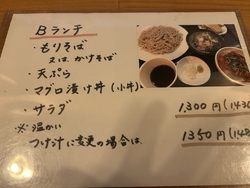 Bランチ
・もりそば
又は、かけそば
・天ぷら
・マグロ漬け丼(小丼)
・サラダ 1,300円(1430
※温かい
つけ汁に変更の場合は、 1350円(148